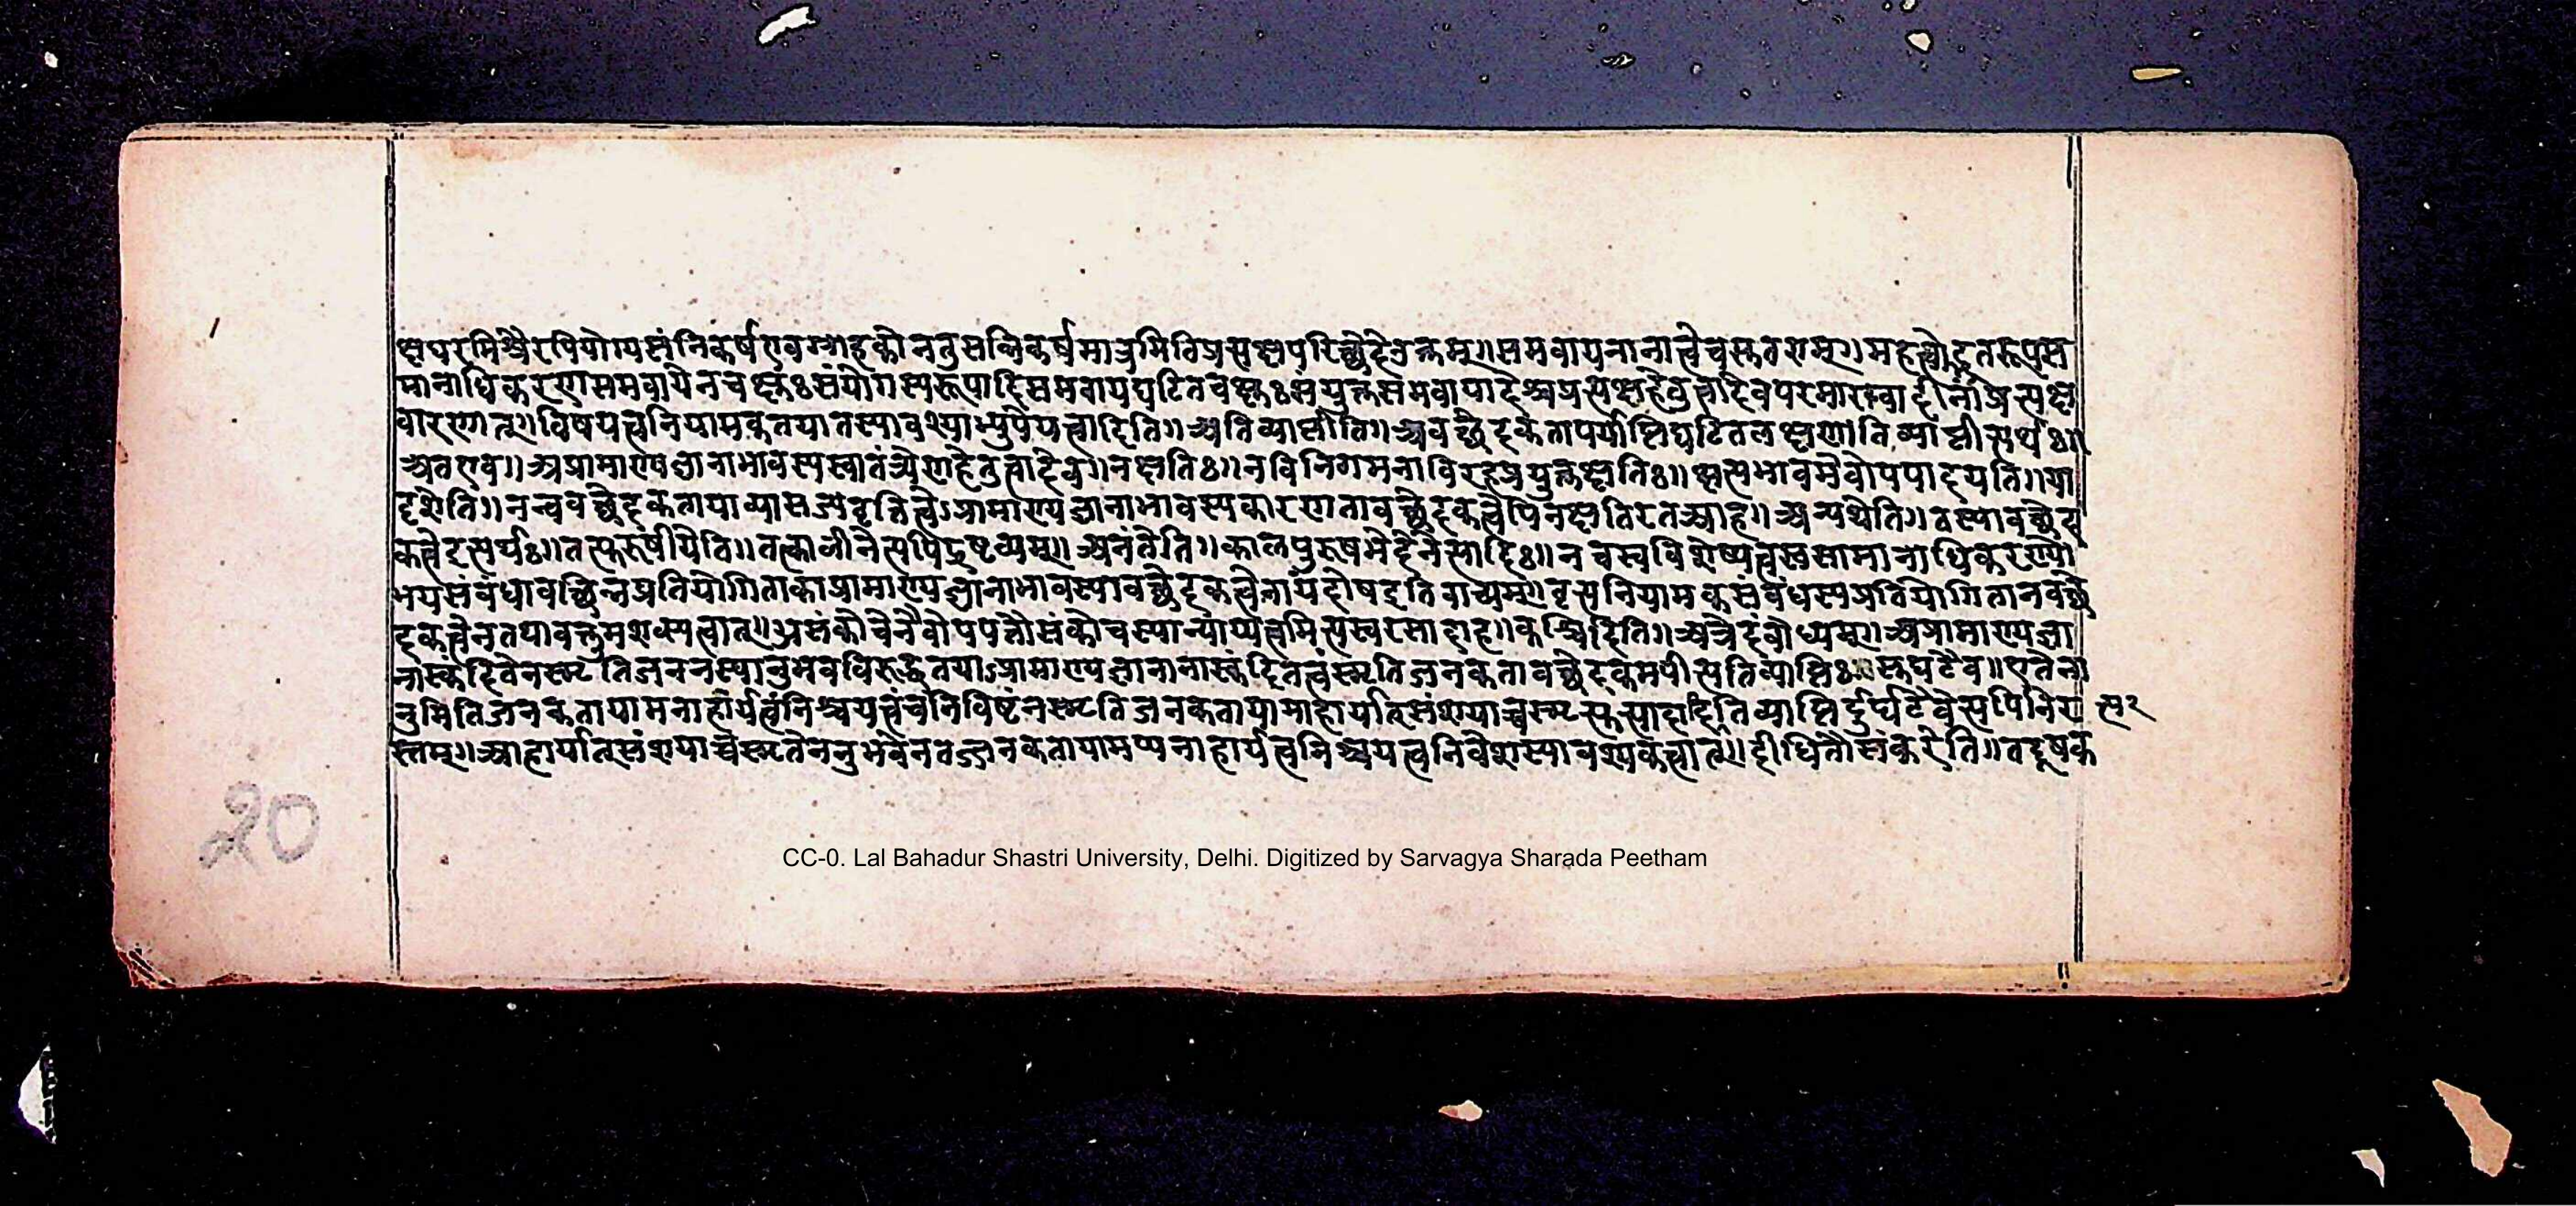 क्षधरमिश्रैरपियोग्यसंनिकर्षएवग्राहकोनतुसन्निकर्षमात्रमितिप्रत्यक्षपरिच्छेदेउक्तम्॥समवायनानात्वेचस्तवराम्॥महत्वोद्भुतरूपस
मानाधिकरणसमवायेनचक्षुःसंयोगस्यरूपादिसमवायघटितचक्षुःसंयुक्तसमवायादेश्चप्रत्यक्षहेतुत्वादेवपरमाण्वादीनांप्रत्यक्ष
वारणात्॥विषयत्वनियामकतयातस्यावश्याभ्युपेयत्वादिति॥अतिव्याप्तीति॥अवच्छेदकतापर्याप्तिघटितलक्षणातिव्याप्तीत्यर्थः॥
अतएव॥अप्रामाण्यज्ञानाभावस्यस्वातंत्र्येणहेतुत्वादेव॥नक्षतिः॥नविनिगमनाविरहप्रयुक्तक्षतिः॥क्षत्यभावमेवोपपादयति॥या
दृशेति॥नन्ववच्छेदकतायाव्यासज्यवृत्तित्वेऽप्रामाण्यज्ञानाभावस्यकारणतावच्छेदकत्वेपिनक्षतिरतआह॥अन्यथेति॥तस्यावच्छेद
कत्वेइत्यर्थः॥तत्पुरुषीयेति॥तत्कालीनेत्यपिद्रष्टव्यम्॥अनंतेति॥कालपुरुषभेदेनेत्यादिः॥नचस्वविशेष्यत्वस्वसामानाधिकरण्यो
भयसंबंधावच्छिन्नप्रतियोगिताकाप्रामाण्यज्ञानाभावस्यावच्छेदकत्वेनायंदोषइतिवाच्यम्॥वृत्त्यनियामकसंबंधस्यप्रतियोगितानवच्छे
दकत्वेनतथावक्तुमशक्यत्वात्॥असंकोचेनैवोपपत्तौसंकोचस्यान्याय्यत्वमित्यस्वरसादाह॥कश्चिदिति॥अत्रेदंबोध्यम्॥अप्रामाण्यज्ञा
नास्कंदितेनस्मृतिजननस्यानुभवविरुद्धतयाऽप्रामाण्यज्ञानानास्कंदितत्वंस्मृतिजनकतावच्छेदकमपीत्यतिव्याप्तिःस्तघटैव॥एतेना
नुमितिजनकतायामनाहार्यत्वंनिश्चयत्वंचनिविष्टंनस्मृतिजनकतायामाहार्यात्संशयाच्चस्मृत्युत्पादादितिव्याप्तिर्दुर्घटैवेत्यपिनिर
स्तम्॥आहार्यात्संशयाच्चस्मृतेरननुभवेनतज्जनकतायामप्यनाहार्यत्वनिश्चयत्वनिवेशस्यावश्यकत्वात्॥दीधितौसंकरेति॥तद्दूषक
20
CC-0. Lal Bahadur Shastri University, Delhi. Digitized by Sarvagya Sharada Peetham